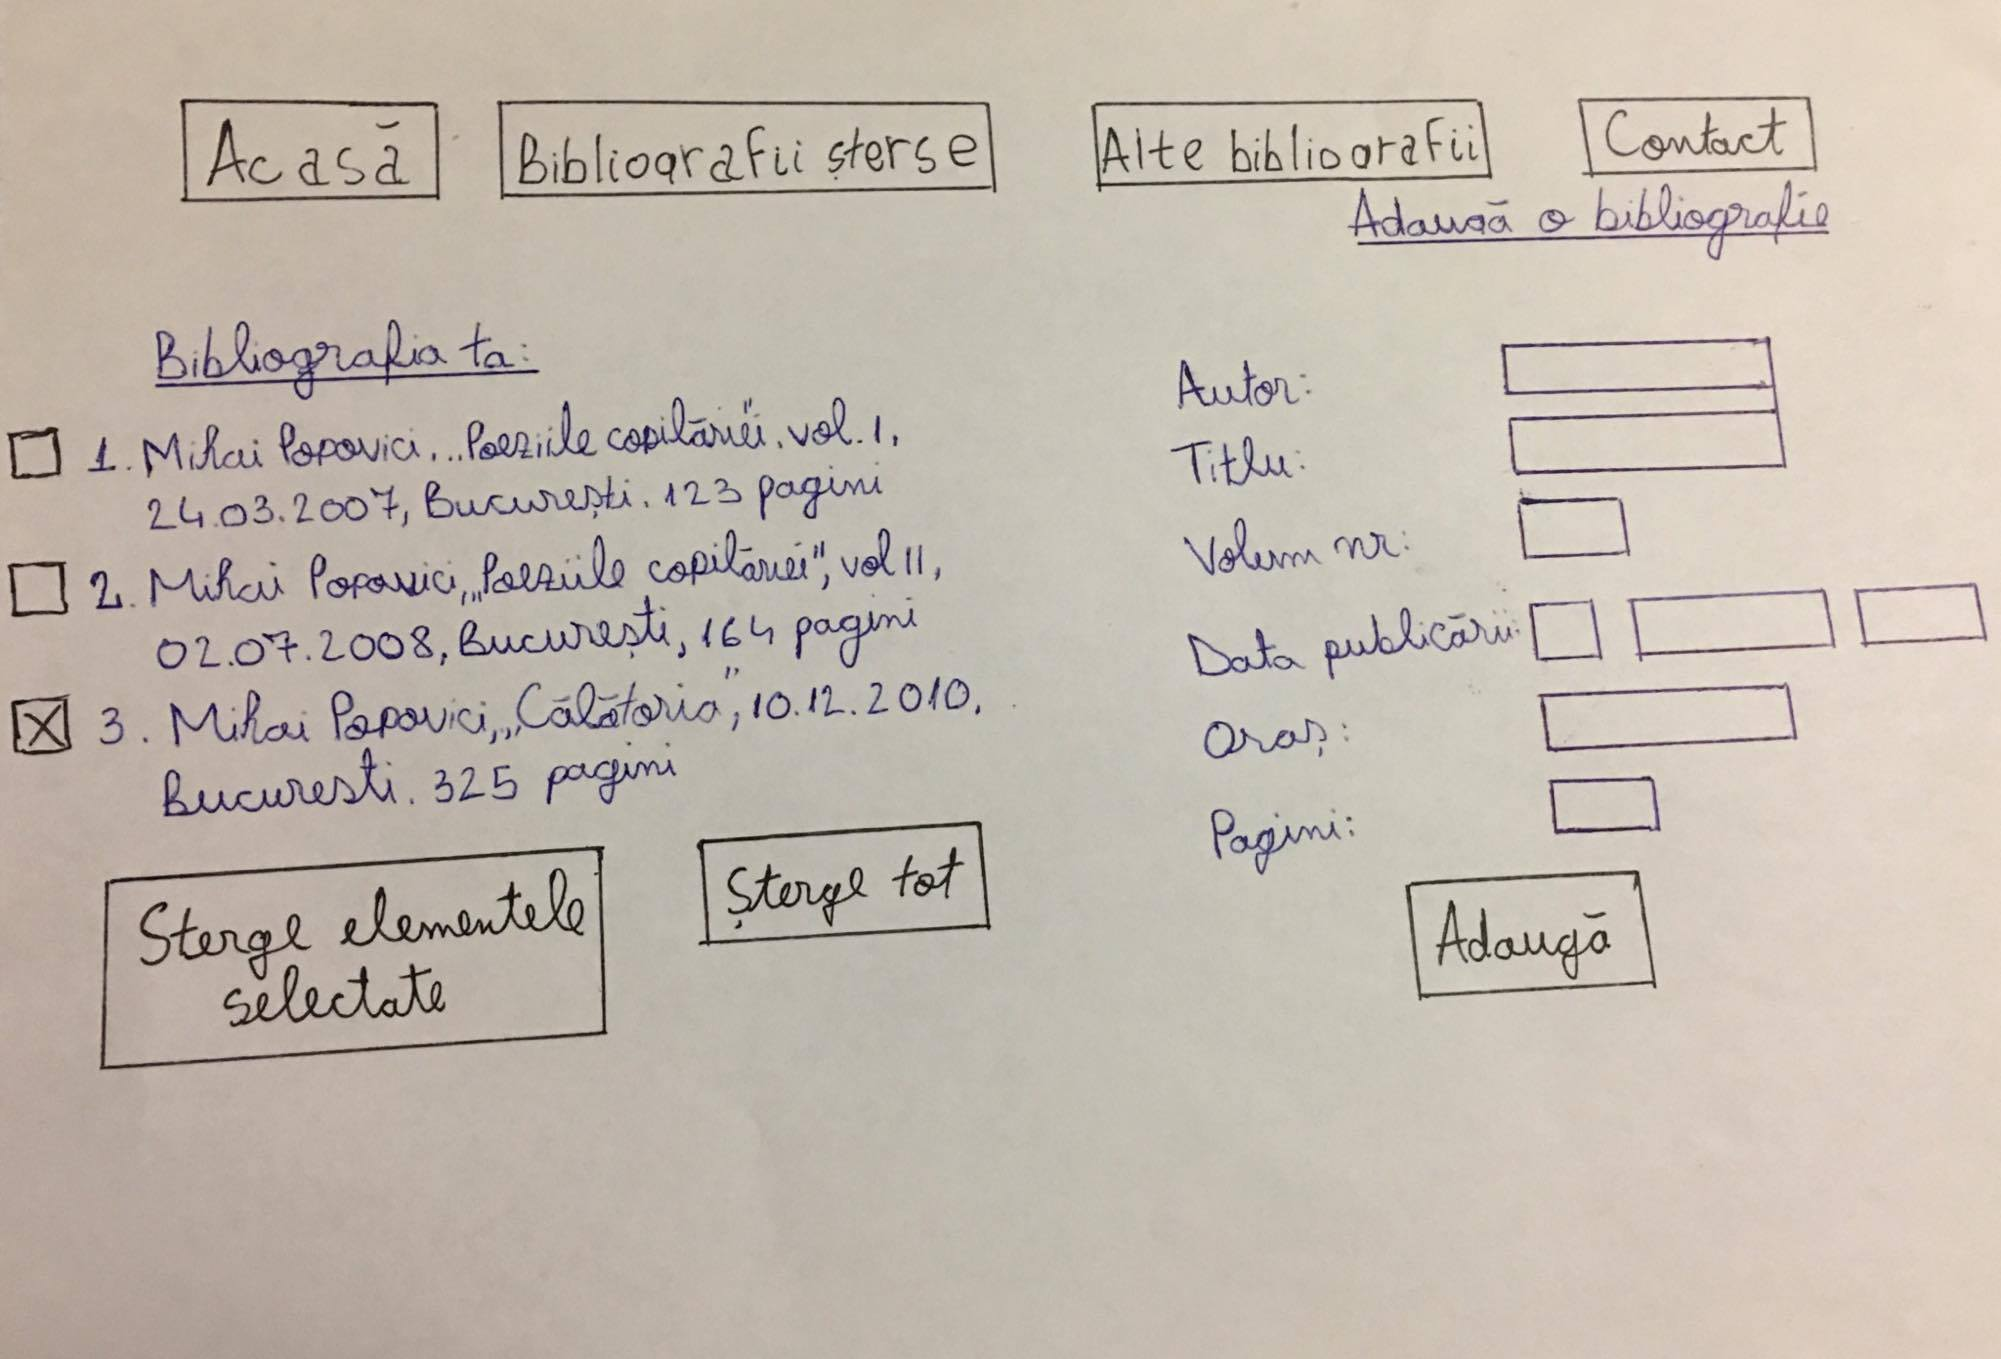 Acasă
Bibliografii șterse
Alte bibliografii
Contact
Adaugă o bibliografie
Bibliografia ta:
1. Mihai Popovici, „Poeziile copilăriei", vol. I,
24.03.2007, București, 123 pagini
2. Mihai Popovici, „Poeziile copilăriei", vol II,
02.07.2008, București, 164 pagini
X 3. Mihai Popovici, „Călătoria", 10.12.2010,
Bucuresti. 325 pagini
Sterge elementele
selectate
Șterge tot
Autor:
Titlu:
Volum nr:
Data publicării:
Oraș:
Pagini:
Adaugă